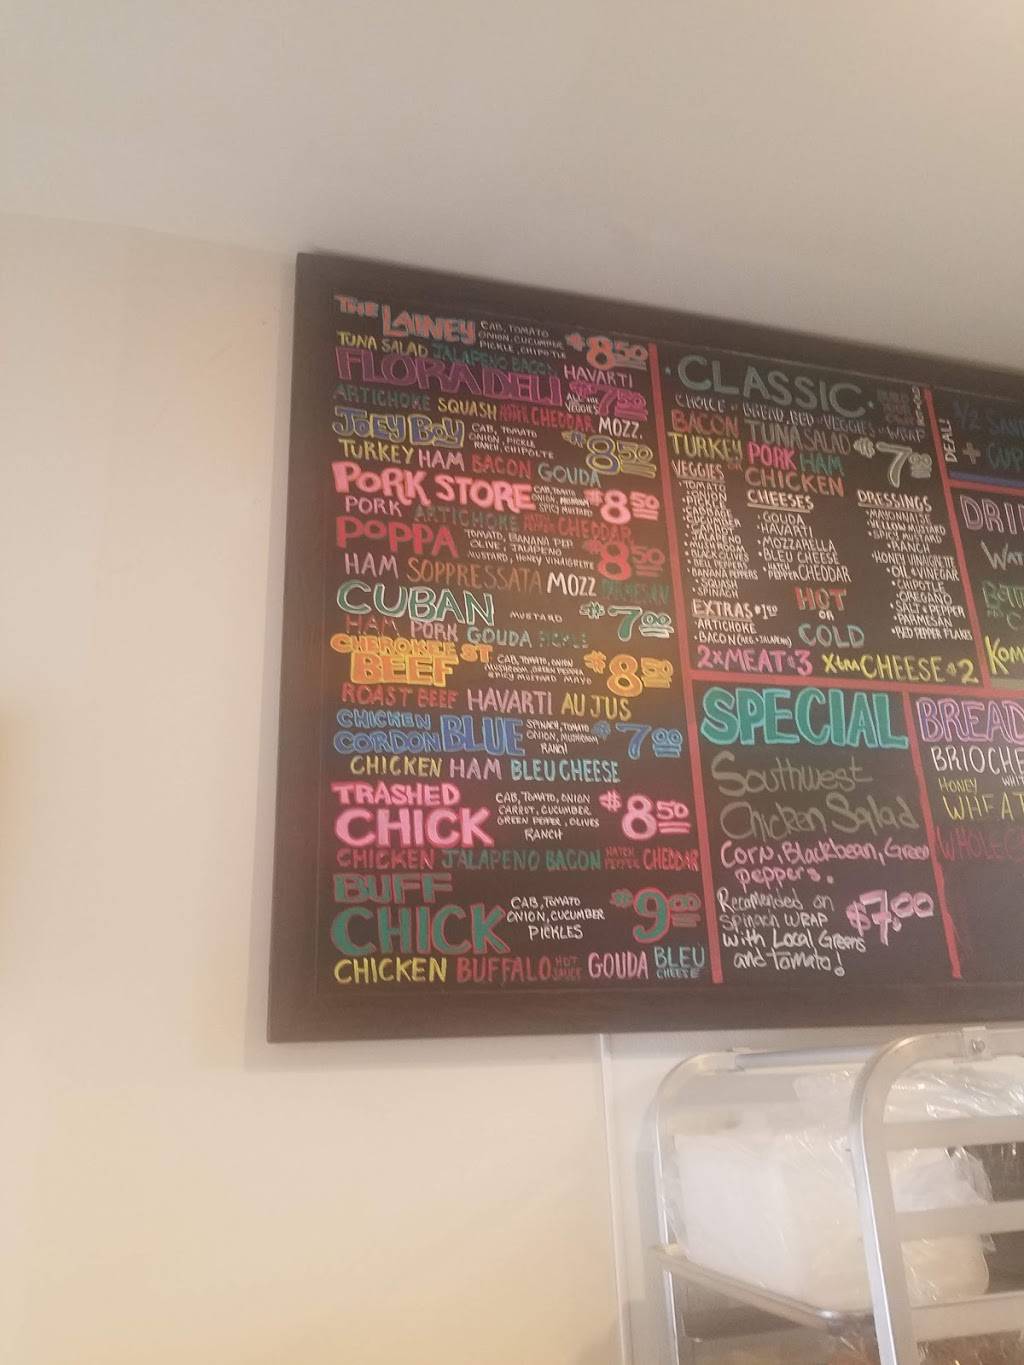 THE LAINEY CAB, TOMATO $8.50
ONION, CUCUMBER
PICKLE, CHIPOTLE
TUNA SALAD JALAPENO BACON HAVARTI
FLORADELI ALL THE VEGGIES $7.50
ARTICHOKE SQUASH CHEDDAR MOZZ.
JOEY BOY CAB, TOMATO $8.50
ONION, PICKLE
RANCH, CHIPOLTE
TURKEY HAM BACON GOUDA
PORK STORE CAB, TOMATO $8.50
ONION, MUSHROOM
SPICY MUSTARD
PORK ARTICHOKE CHEDDAR
POPPA TOMATO, BANANA PEP $8.50
OLIVE, JALAPENO
OREGANO, HONEY VINAIGRETTE
HAM SOPPRESSATA MOZZ PARMESAN
CUBAN MUSTARD $7.00
HAM PORK GOUDA PICKLE
CHEROKEE ST BEEF CAB, TOMATO, ONION $8.50
MUSHROOM, GREEN PEPPER
SPICY MUSTARD MAYO
ROAST BEEF HAVARTI AU JUS
CHICKEN CORDON BLUE SPINACH, TOMATO $7.00
ONION, MUSHROOM
RANCH
CHICKEN HAM BLEU CHEESE
TRASHED CHICK CAB, TOMATO, ONION $8.50
CARROT, CUCUMBER
GREEN PEPPER, OLIVES
RANCH
CHICKEN JALAPENO BACON HATCH PEPPER CHEDDAR
BUFF CHICK CAB, TOMATO $9.00
ONION, CUCUMBER
PICKLES
CHICKEN BUFFALO HOT SAUCE GOUDA BLEU CHEESE
CLASSIC
CHOICE OF BREAD, BED OF VEGGIES OR WRAP
BACON TUNA SALAD $7.00
TURKEY PORK HAM
OR CHICKEN
VEGGIES
TOMATO
ONION
SPINACH
BANANA PEPPERS
SQUASH
BELL PEPPERS
CHEESES
GOUDA
HAVARTI
MOZZARELLA
BLEU CHEESE
HATCH PEPPER CHEDDAR
DRESSINGS
MAYONNAISE
YELLOW MUSTARD
SPICY MUSTARD
RANCH
HONEY VINAIGRETTE
OIL & VINEGAR
CHIPOTLE
OREGANO
SALT & PEPPER
PARMESAN
RED PEPPER FLAKES
EXTRAS $1.50
ARTICHOKE
BACON (REG. - JALAPENO)
HOT
OR
COLD
2x MEAT $3 Xtra CHEESE $2
SPECIAL
Southwest
Chicken Salad
Corn, Blackbean, Green
peppers.
Recomended on $7.00
Spinach WRAP
with Local Greens
and tomato!
DEAL!
1/2 SAN
+ CUP
DRI
WAT
KOM
BREAD
BRIOCHE
HONEY
WHEAT
WHOLEG